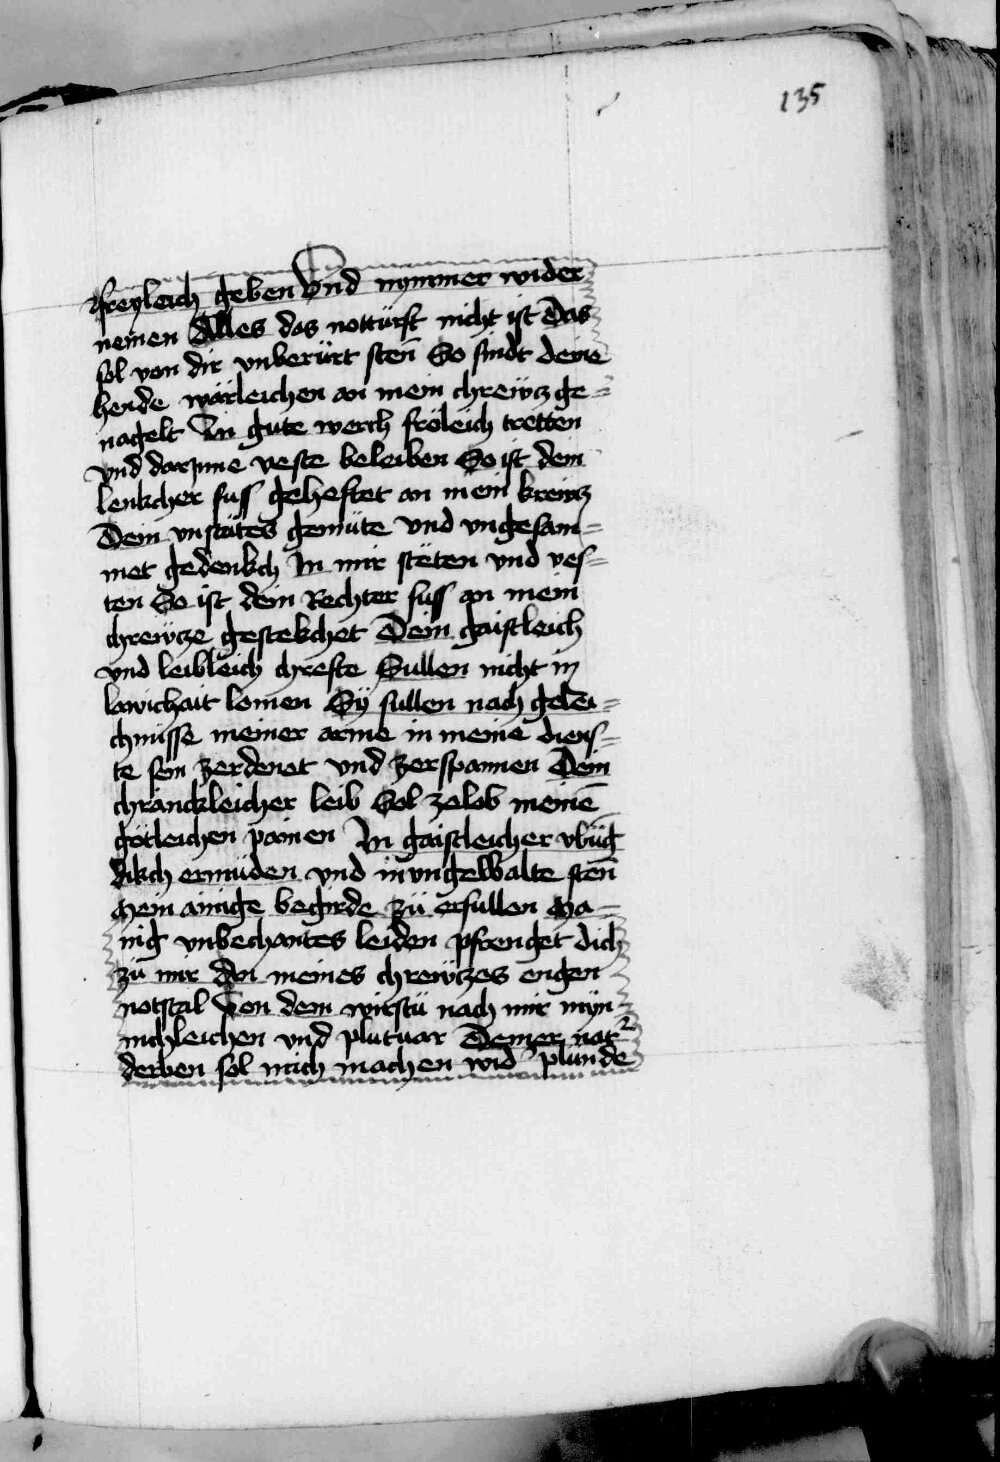 135
freyleich geben Vnd nymmer wider
nemen Alles das notturft nicht ist Das
sol von dir vnberürt sten So sindt deine
hende wärleichen an mein chrewcz ge=
nagelt In gute werch fröleich tretten
vnd darynne veste beleiben So ist dein
lenkcher fuss geheftet an mein kreucz
Dein vnstätes gemüte Vnd vngesam=
met gedenkch In mir stëten vnd ves=
ten So ist dein Rechter fuss an mein
chrewcze gestekchet Dein gaistleich
vnd leibleich chrefte Sullen nicht in
lawichait lomen Sÿ sullen nach gelei=
chnüsse meiner arme in meine diens=
te sein zerdenet vnd zerspannen Dein
chranckleicher leib Sol zelob meinē
götleichen painen In gaistleicher vbūg
dikch ermüden vnd in vngewalte sten
mein ainige begirde zü erfullen Ma=
nig vnbechantes leiden pfrenget dich
zü mir An meines chrewczes engen
notstal Von dem wirstu nach mir myn=
nichleichen vnd pluetuar Deiner nat
derben sol mich machen wid plunde